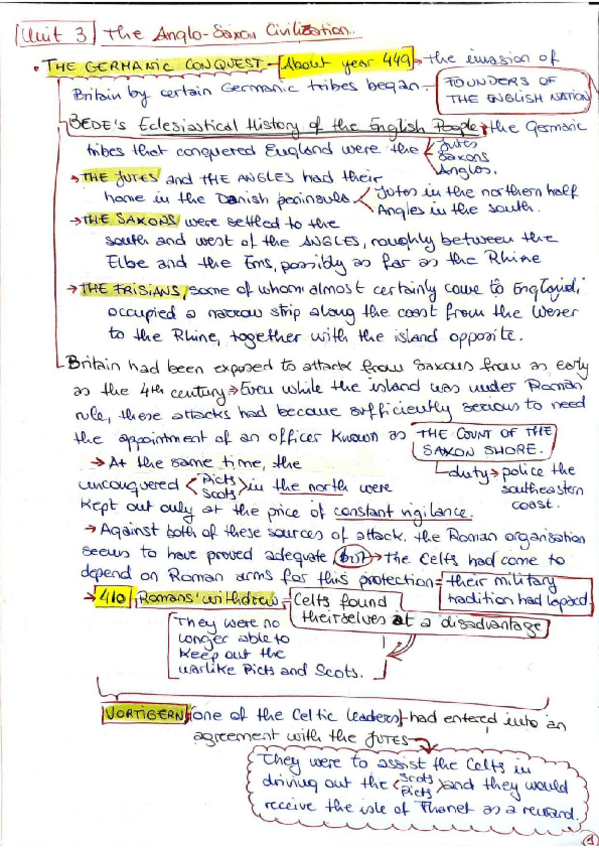 Unit 3 The Anglo-Saxon Civilization.
• THE GERMANIC CONQUEST - About year 449 → the invasion of
Britain by certain Germanic tribes began → FOUNDERS OF
THE ENGLISH NATION
BEDE'S Eclesiastical History of the English People → the Germanic
tribes that conquered England were the < Jutes
Saxons
Angles.
→ THE JUTES and THE ANGLES had their
home in the Danish peninsula < Jutes in the northern half
Angles in the south.
→ THE SAXONS were settled to the
south and west of the ANGLES, roughly between the
Elbe and the Ems, possibly as far as the Rhine
→ THE FRISIANS, some of whom almost certainly came to England,
occupied a narrow strip along the coast from the Weser
to the Rhine, together with the island opposite.
Britain had been exposed to attacks from Saxons from as early
as the 4th century → Even while the island was under Roman
rule, these attacks had become sufficiently serious to need
the appointment of an officer known as THE COUNT OF THE
SAXON SHORE.
→ At the same time, the
duty → police the
southeastern
coast.
unconquered < Picts
Scots > in the north were
kept out only at the price of constant vigilance.
→ Against both of these sources of attack, the Roman organisation
seems to have proved adequate but → the Celts had come to
depend on Roman arms for this protection = their military
tradition had lapsed.
→ 410 Romans' withdrew = Celts found
theirselves at a disadvantage
They were no
longer able to
keep out the
warlike Picts and Scots.
VORTIGERN (one of the Celtic leaders) had entered into an
agreement with the JUTES →
They were to assist the Celts in
driving out the < Scots
Picts > and they would
receive the isle of Thanet as a reward.
1